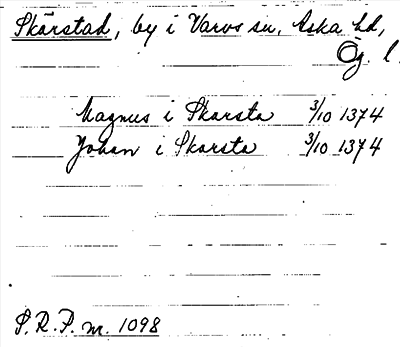 Skärstad, by i Varvs sn, Aska hd,
Ög. l.
Magnus i Skarsta 3/10 1374
Johan i Skarsta 3/10 1374
S.R.P. nr. 1098